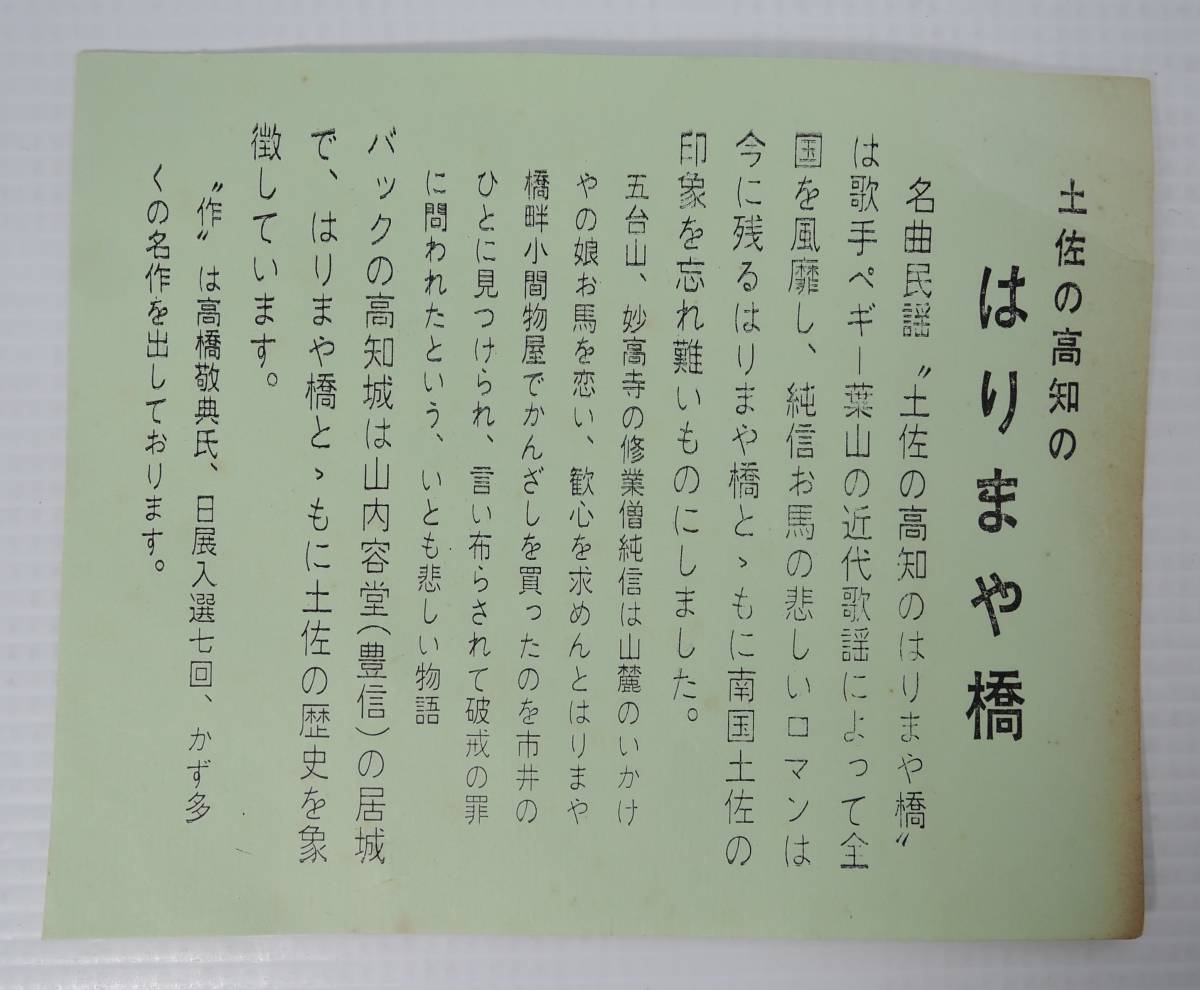 土佐の高知の
はりまや橋
名曲民謡〝土佐の高知のはりまや橋〟
は歌手ペギー葉山の近代歌謡によって全
国を風靡し、純信お馬の悲しいロマンは
今に残るはりまや橋とゝもに南国土佐の
印象を忘れ難いものにしました。
五台山、妙高寺の修業僧純信は山麓のいかけ
やの娘お馬を恋い、歓心を求めんとはりまや
橋畔小間物屋でかんざしを買ったのを市井の
ひとに見つけられ、言い布らされて破戒の罪
に問われたという、いとも悲しい物語
バックの高知城は山内容堂(豊信)の居城
で、はりまや橋とゝもに土佐の歴史を象
徴しています。
〝作〟は高橋敬典氏、日展入選七回、かず多
くの名作を出しております。